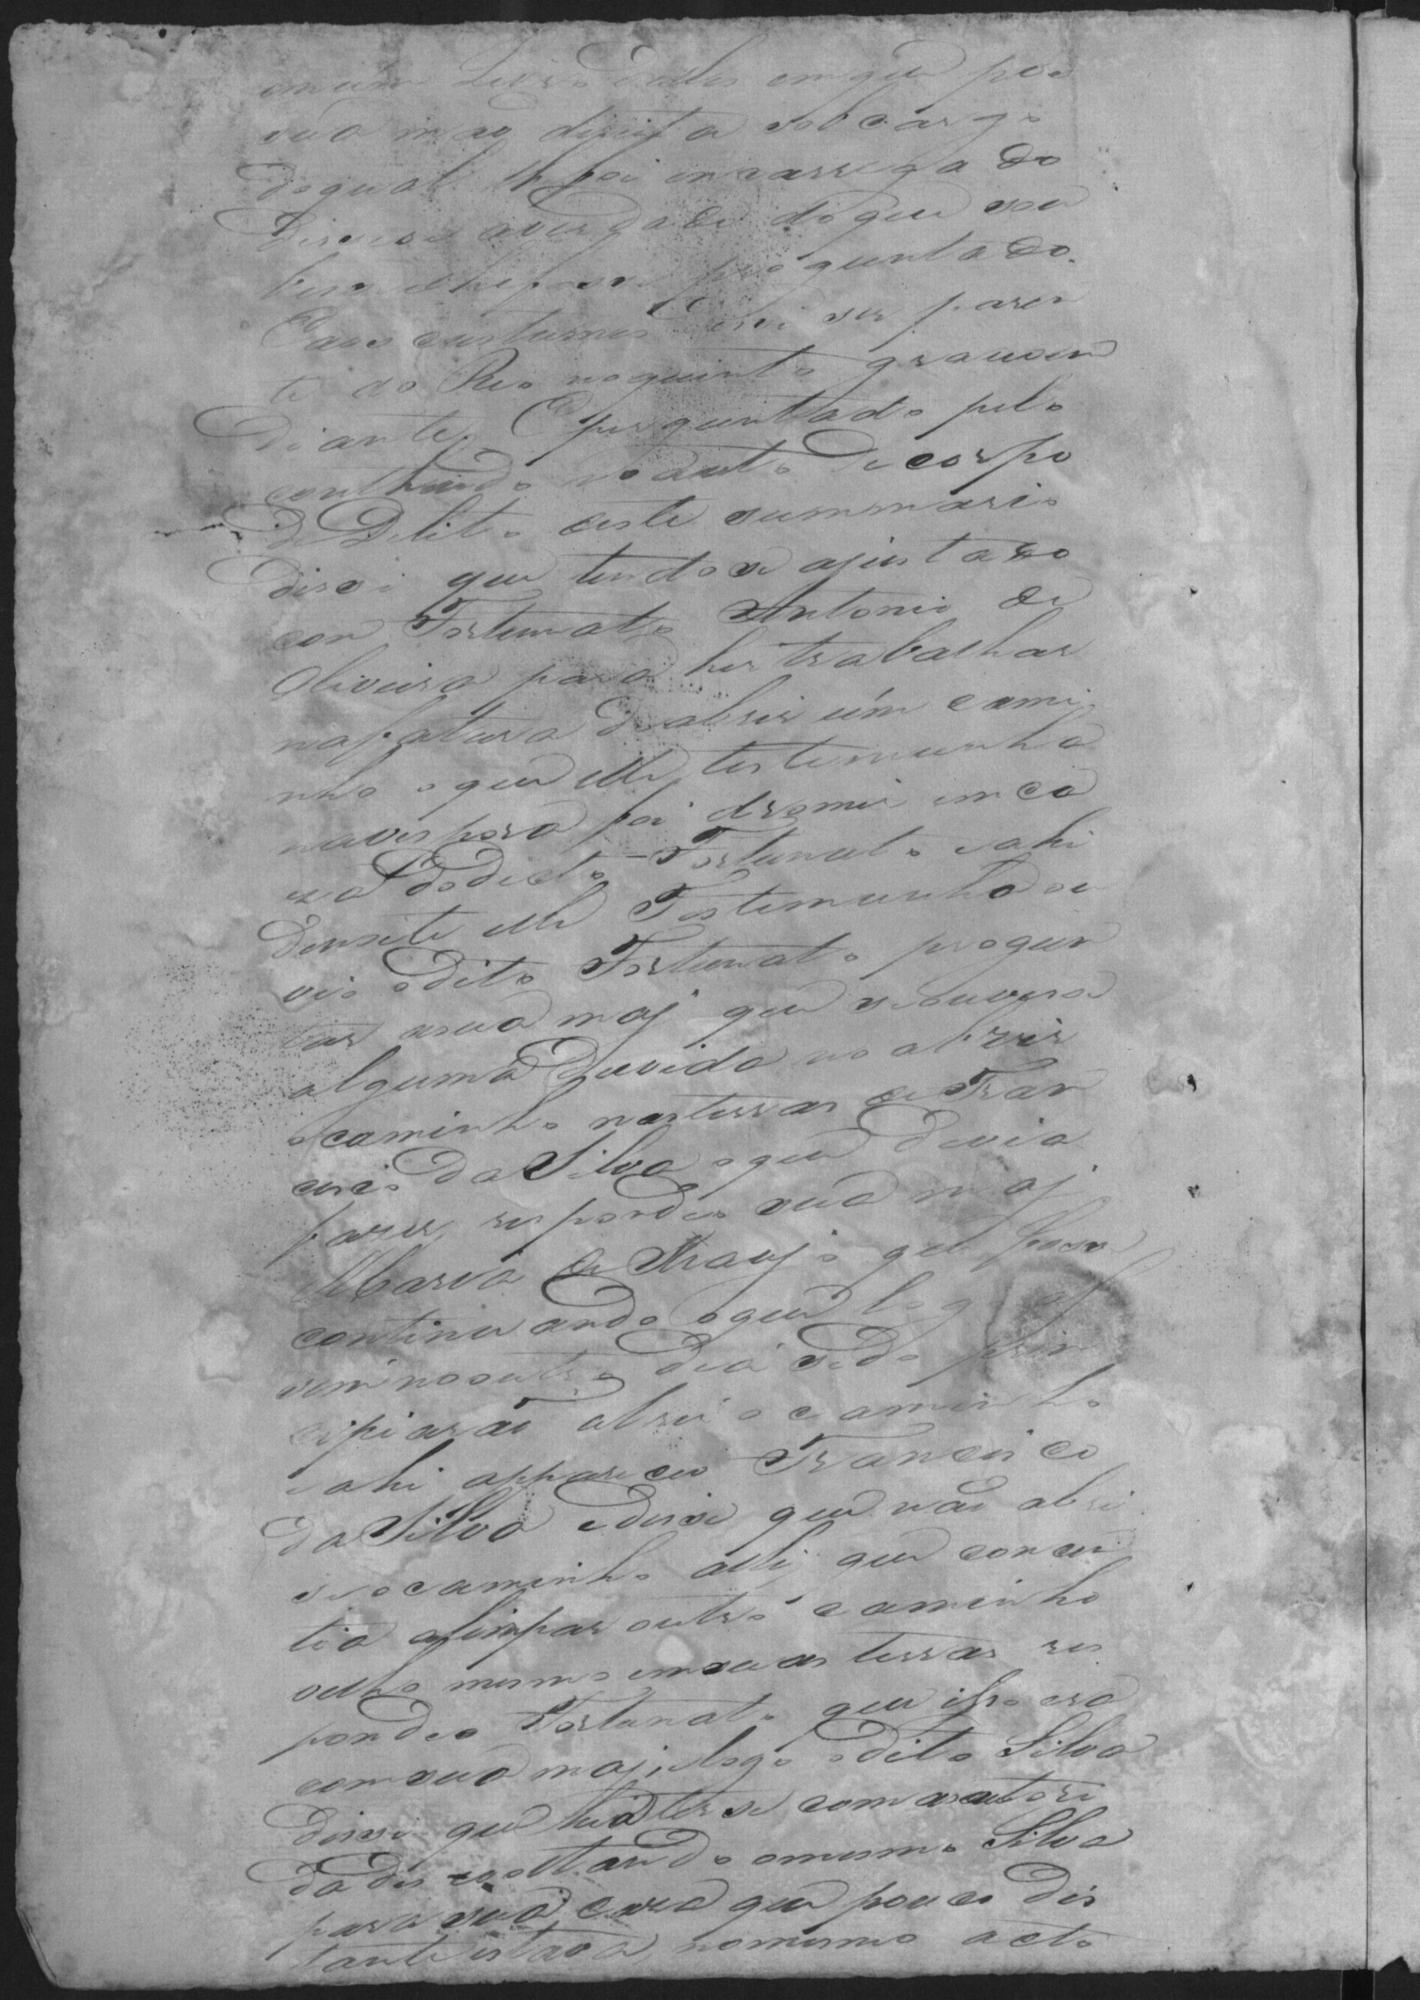 em um Livro delles em que pos
sua mão direita sob cargo
do qual lhe foi encarregado
disesse averdade do que sou
besse e lhe fosse preguntado.
E aos custumes disse ser paren
te do Reo no quinto grau em
diante. E preguntado pelo
conthiudo no auto de corpo
de Delito e este summario
disse que tendo se ajustado
con Fortunato Antonio de
Oliveira para hir trabalhar
na fatura de abrir um cami
nho o que elle testemunha
na vespora foi dromir em ca
za do dicto Fortunato e ahi
denoite elle Testemunha ou
vio o dito Fortunato pregun
tar a sua maj que se ouvese
alguma duvida no abrir
o caminho nas terras de Fran
cisco da Silva o que devia
fazer, respondeo sua maj
Maria de Araujo que fose
continuando o que logo
vem no outro dia sedo prin
cipiarão abrir o caminho
e ahi appareceo Francisco
da Silva e disse que não abri
se o caminho alli que concen
tia alimpar outro caminho
velho mesmo em suas terras res
pondeo Fortunato que isso era
com sua maj, e logo o dito Silva
disse que hia ter se com as autori
dades voltando o mesmo Silva
para sua caza que pouco dis
tante estava, no mesmo acto